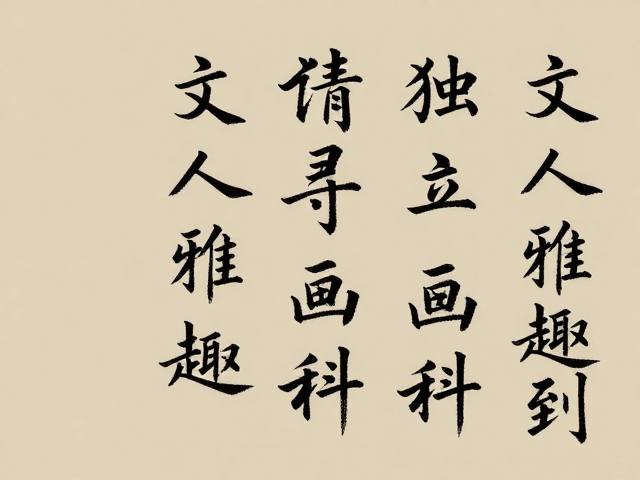 文人雅趣到
独立画科
请寻画科
文人雅趣